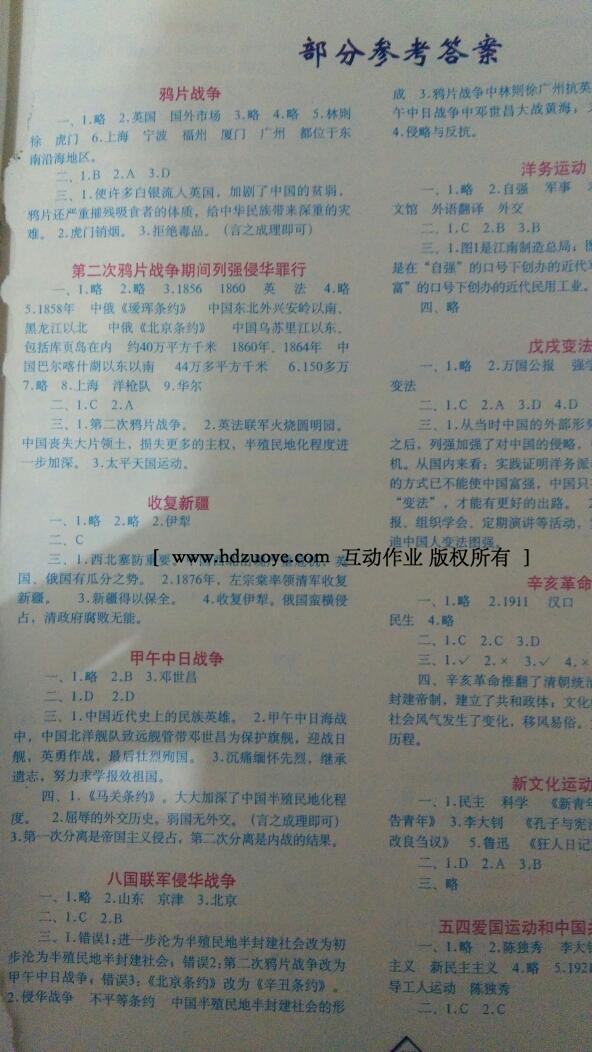 部分参考答案
鸦片战争
一、1.略 2.英国 国外市场 3.略 4.略 5.林则
徐 虎门 6.上海 宁波 福州 厦门 广州 都位于东
南沿海地区。
二、1.B 2.A 3.D
三、1.使许多白银流入英国，加剧了中国的贫弱，
鸦片还严重摧残吸食者的体质，给中华民族带来深重的灾
难。 2.虎门销烟。 3.拒绝毒品。（言之成理即可）
第二次鸦片战争期间列强侵华罪行
一、1.略 2.略 3.1856 1860 英 法 4.略
5.1858年 中俄《瑷珲条约》 中国东北外兴安岭以南、
黑龙江以北 中俄《北京条约》 中国乌苏里江以东、
包括库页岛在内 约40万平方千米 1860年、1864年 中
国巴尔喀什湖以东以南 44万多平方千米 6.150多万
7.略 8.上海 洋枪队 9.华尔
二、1.C 2.A
三、1.第二次鸦片战争。 2.英法联军火烧圆明园。
中国丧失大片领土，损失更多的主权，半殖民地化程度进
一步加深。 3.太平天国运动。
收复新疆
一、1.略 2.略 2.伊犁
二、C
三、1.西北塞防重要，
[ www.hdzuoye.com 互动作业 版权所有 ]
国、俄国有瓜分之势。 2.1876年，左宗棠率领清军收复
新疆。 3.新疆得以保全。 4.收复伊犁。俄国蛮横侵
占，清政府腐败无能。
甲午中日战争
一、1.略 2.B 3.邓世昌
二、1.D 2.D
三、1.中国近代史上的民族英雄。 2.甲午中日海战
中，中国北洋舰队致远舰管带邓世昌为保护旗舰，迎战日
舰，英勇作战，最后壮烈殉国。 3.沉痛缅怀先烈，继承
遗志，努力求学报效祖国。
四、1.《马关条约》。大大加深了中国半殖民地化程
度。 2.屈辱的外交历史。弱国无外交。（言之成理即可）
3.第一次分离是帝国主义侵占，第二次分离是内战的结果。
八国联军侵华战争
一、1.略 2.山东 京津 3.北京
二、1.C 2.B
三、1.错误1：进一步沦为半殖民地半封建社会改为初
步沦为半殖民地半封建社会；错误2：第二次鸦片战争改为
甲午中日战争；错误3：《北京条约》改为《辛丑条约》。
2.侵华战争 不平等条约 中国半殖民地半封建社会的形
成 3.鸦片战争中林则徐广州抗英
午中日战争中邓世昌大战黄海；
4.侵略与反抗。
洋务运动
一、1.略 2.自强 军事
文馆 外语翻译 外交
二、1.C 2.B 3.B
三、1.图1是江南制造总局；图
是在“自强”的口号下创办的近代
富”的口号下创办的近代民用工业。
四、略
戊戌变法
一、1.略 2.万国公报 强学
变法
二、1.C 2.A 3.D 4.D
三、1.从当时中国的外部形势
之后，列强加强了对中国的侵略，
机。从国内来看：实践证明洋务派
的方式已不能使中国富强，中国只
“变法”，才能有更好的出路。
报、组织学会、定期演讲等活动，
迪中国人变法图强。
辛亥革命
一、1.略 2.1911 汉口
民生 4.略
二、1.C 2.C 3.D
三、1.√ 2.× 3.√ 4.×
四、辛亥革命推翻了清朝统治
封建帝制，建立了共和政体；文化
社会风气发生了变化，移风易俗。
历程。
新文化运动
一、1.民主 科学 《新青年
告青年》 3.李大钊 《孔子与宪
改良刍议》 5.鲁迅 《狂人日记
二、1.D 2.A 3.B
三、略
五四爱国运动和中国共
一、1.略 2.陈独秀 李大钊
主义 新民主主义 4.略 5.192
导工人运动 陈独秀
二、1.C 2.C